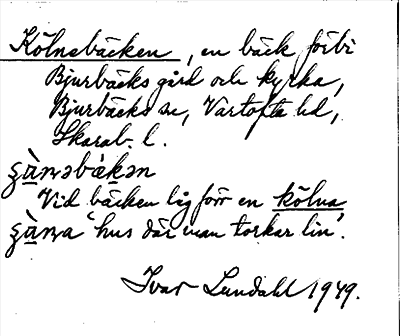 Kölnebäcken, en bäck förbi
Bjurbäcks gård och kyrka,
Bjurbäcks sn, Vartofta hd,
Skarab. l.
Vid bäcken låg förr en kölna,
'hus där man torkar lin'.
Ivar Lundahl 1949.